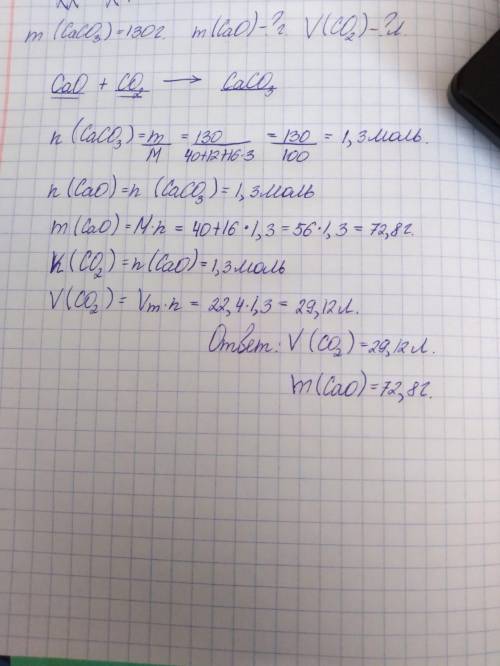 m (CaCO₃)=130г. m(CaO)-?г V(CO₂)-?л.
CaO + CO₂ → CaCO₃
n (CaCO₃)=m/M = 130/40+12+16·3 = 130/100 = 1,3моль.
n (CaO)=n (CaCO₃)=1,3моль
m(CaO)=M·n = 40+16·1,3=56·1,3=72,8г.
n(CO₂)=n(CaO)=1,3моль
V(CO₂)= Vm·n = 22,4·1,3 = 29,12л.
Ответ: V (CO₂)=29,12л.
m(CaO)=72,8г.